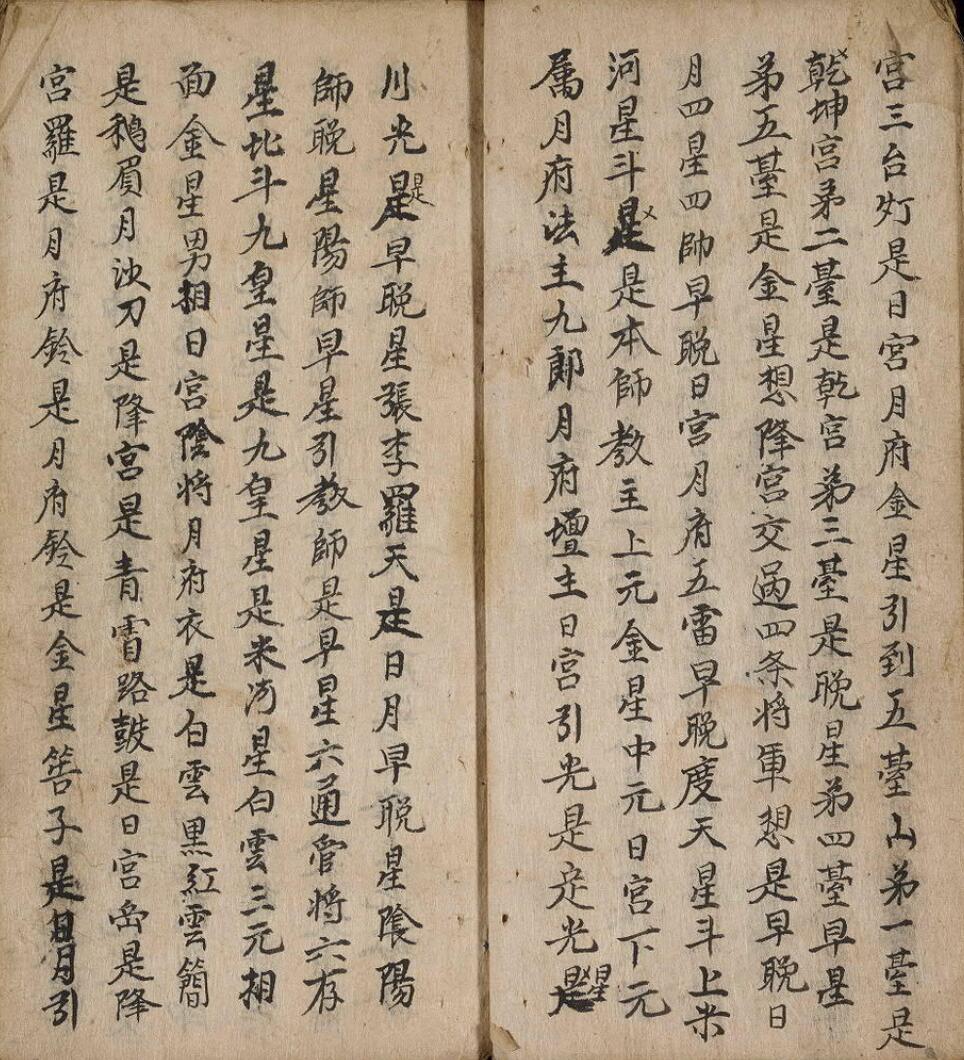 宫三台灯是日宫月府金星引到五臺山弟一臺是
乾坤宫弟二臺是乾宫弟三臺是晚星弟四臺早星
弟五臺是金星想降宫交過四条将軍想是早晚日
月四星四帥早晚日宫月府五雷早晚度天星斗上米
河星斗是是本師教主上元金星中元日宫下元
属月府法主九郎月府壇主日宫引光是定光星
川光是早晚星張李羅天是日月早晚星陰陽
師晚星陽師早星引教師是早星六通管将六存
星北斗九皇星是九皇星是米河星白雲三元相
面金星男相日宫陰将月府衣是白雲黒紅雲簡
是鵝眉月刀是降宫是青霄路鼓是日宫是降
宫羅是月府鈴是月府鈴是金星筶子是日月引